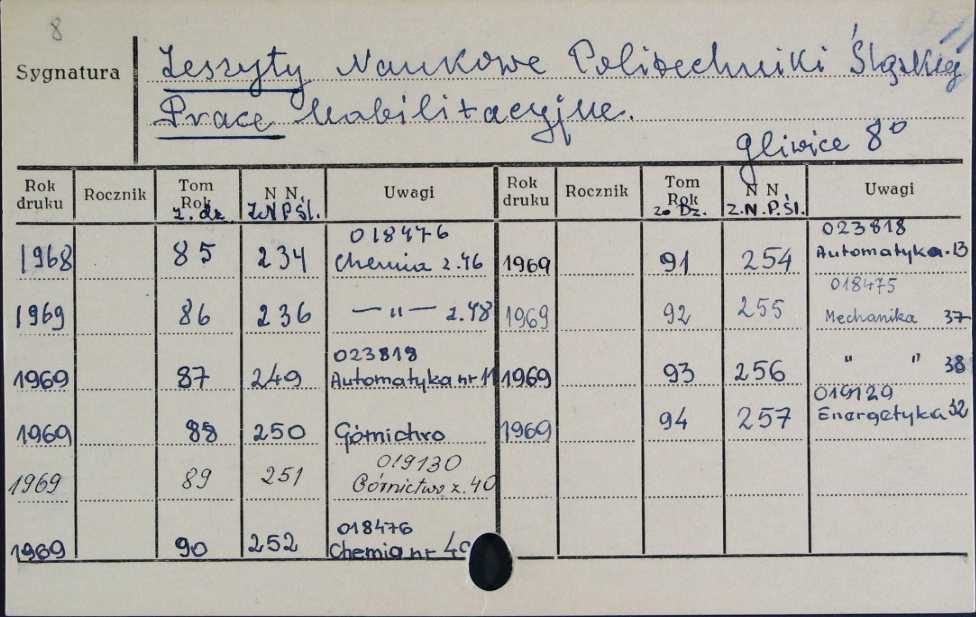 8
Sygnatura
Zeszyty Naukowe Politechniki Śląskiej
Prace Habilitacyjne.
Gliwice 8°
Rok druku Rocznik Tom Rok z. dz. N N. Z.N.P.Śl. Uwagi Rok druku Rocznik Tom Rok zo Dz. N N. Z.N.P.Śl. Uwagi
1968 85 234 018476 Chemia z.46 1969 91 254 023818 Automatyka.13
1969 86 236 — " — z.48 1969 92 255 018475 Mechanika 37
1969 87 249 023818 Automatyka nr 11 1969 93 256 " " 38
1969 88 250 Górnichro 1969 94 257 019129 Energetyka 32
1969 89 251 019130 Górnictwo z.40
1969 90 252 018476 Chemia nr